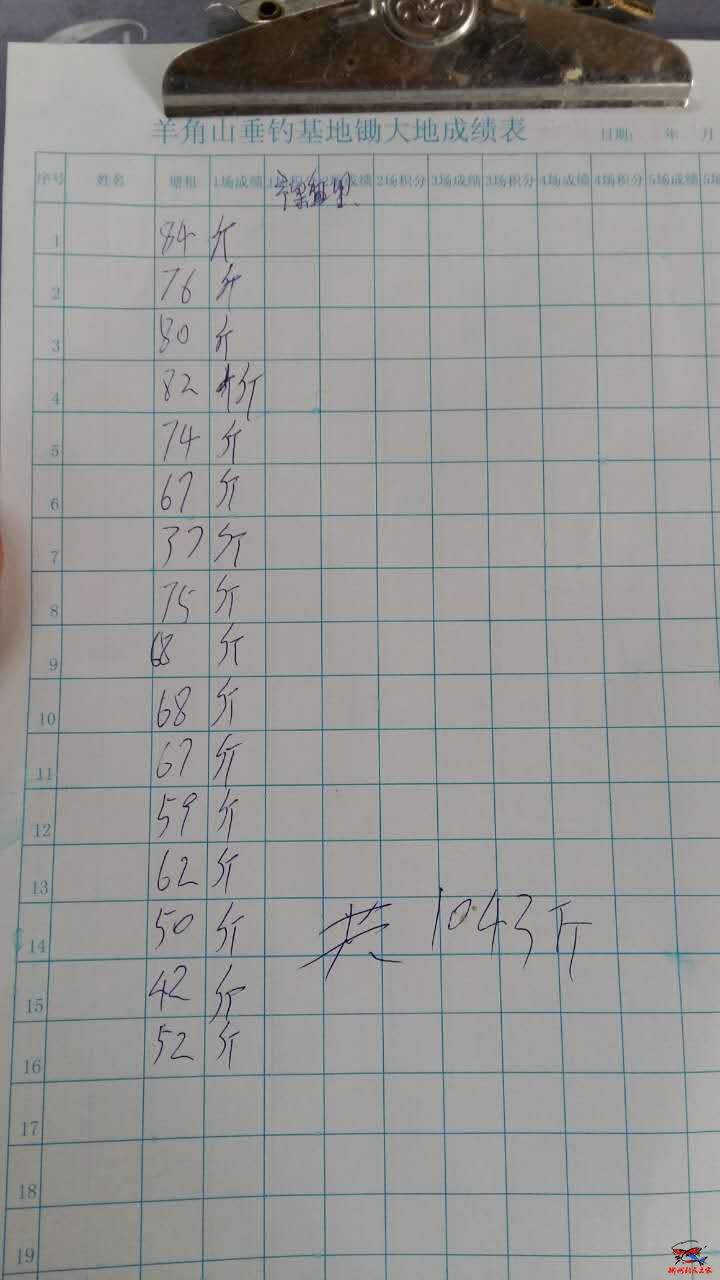 羊角山垂钓基地锄大地成绩表
日期: 年 月
序号 姓名 1场成绩 2场积分 3场成绩 3场积分 4场成绩 4场积分 5场成绩
1 84 斤
2 76 斤
3 80 斤
4 82 斤
5 74 斤
6 67 斤
7 37 斤
8 75 斤
9 68 斤
10 68 斤
11 67 斤
12 59 斤
13 62 斤
14 50 斤 共 1043斤
15 42 斤
16 52 斤
17
18
19